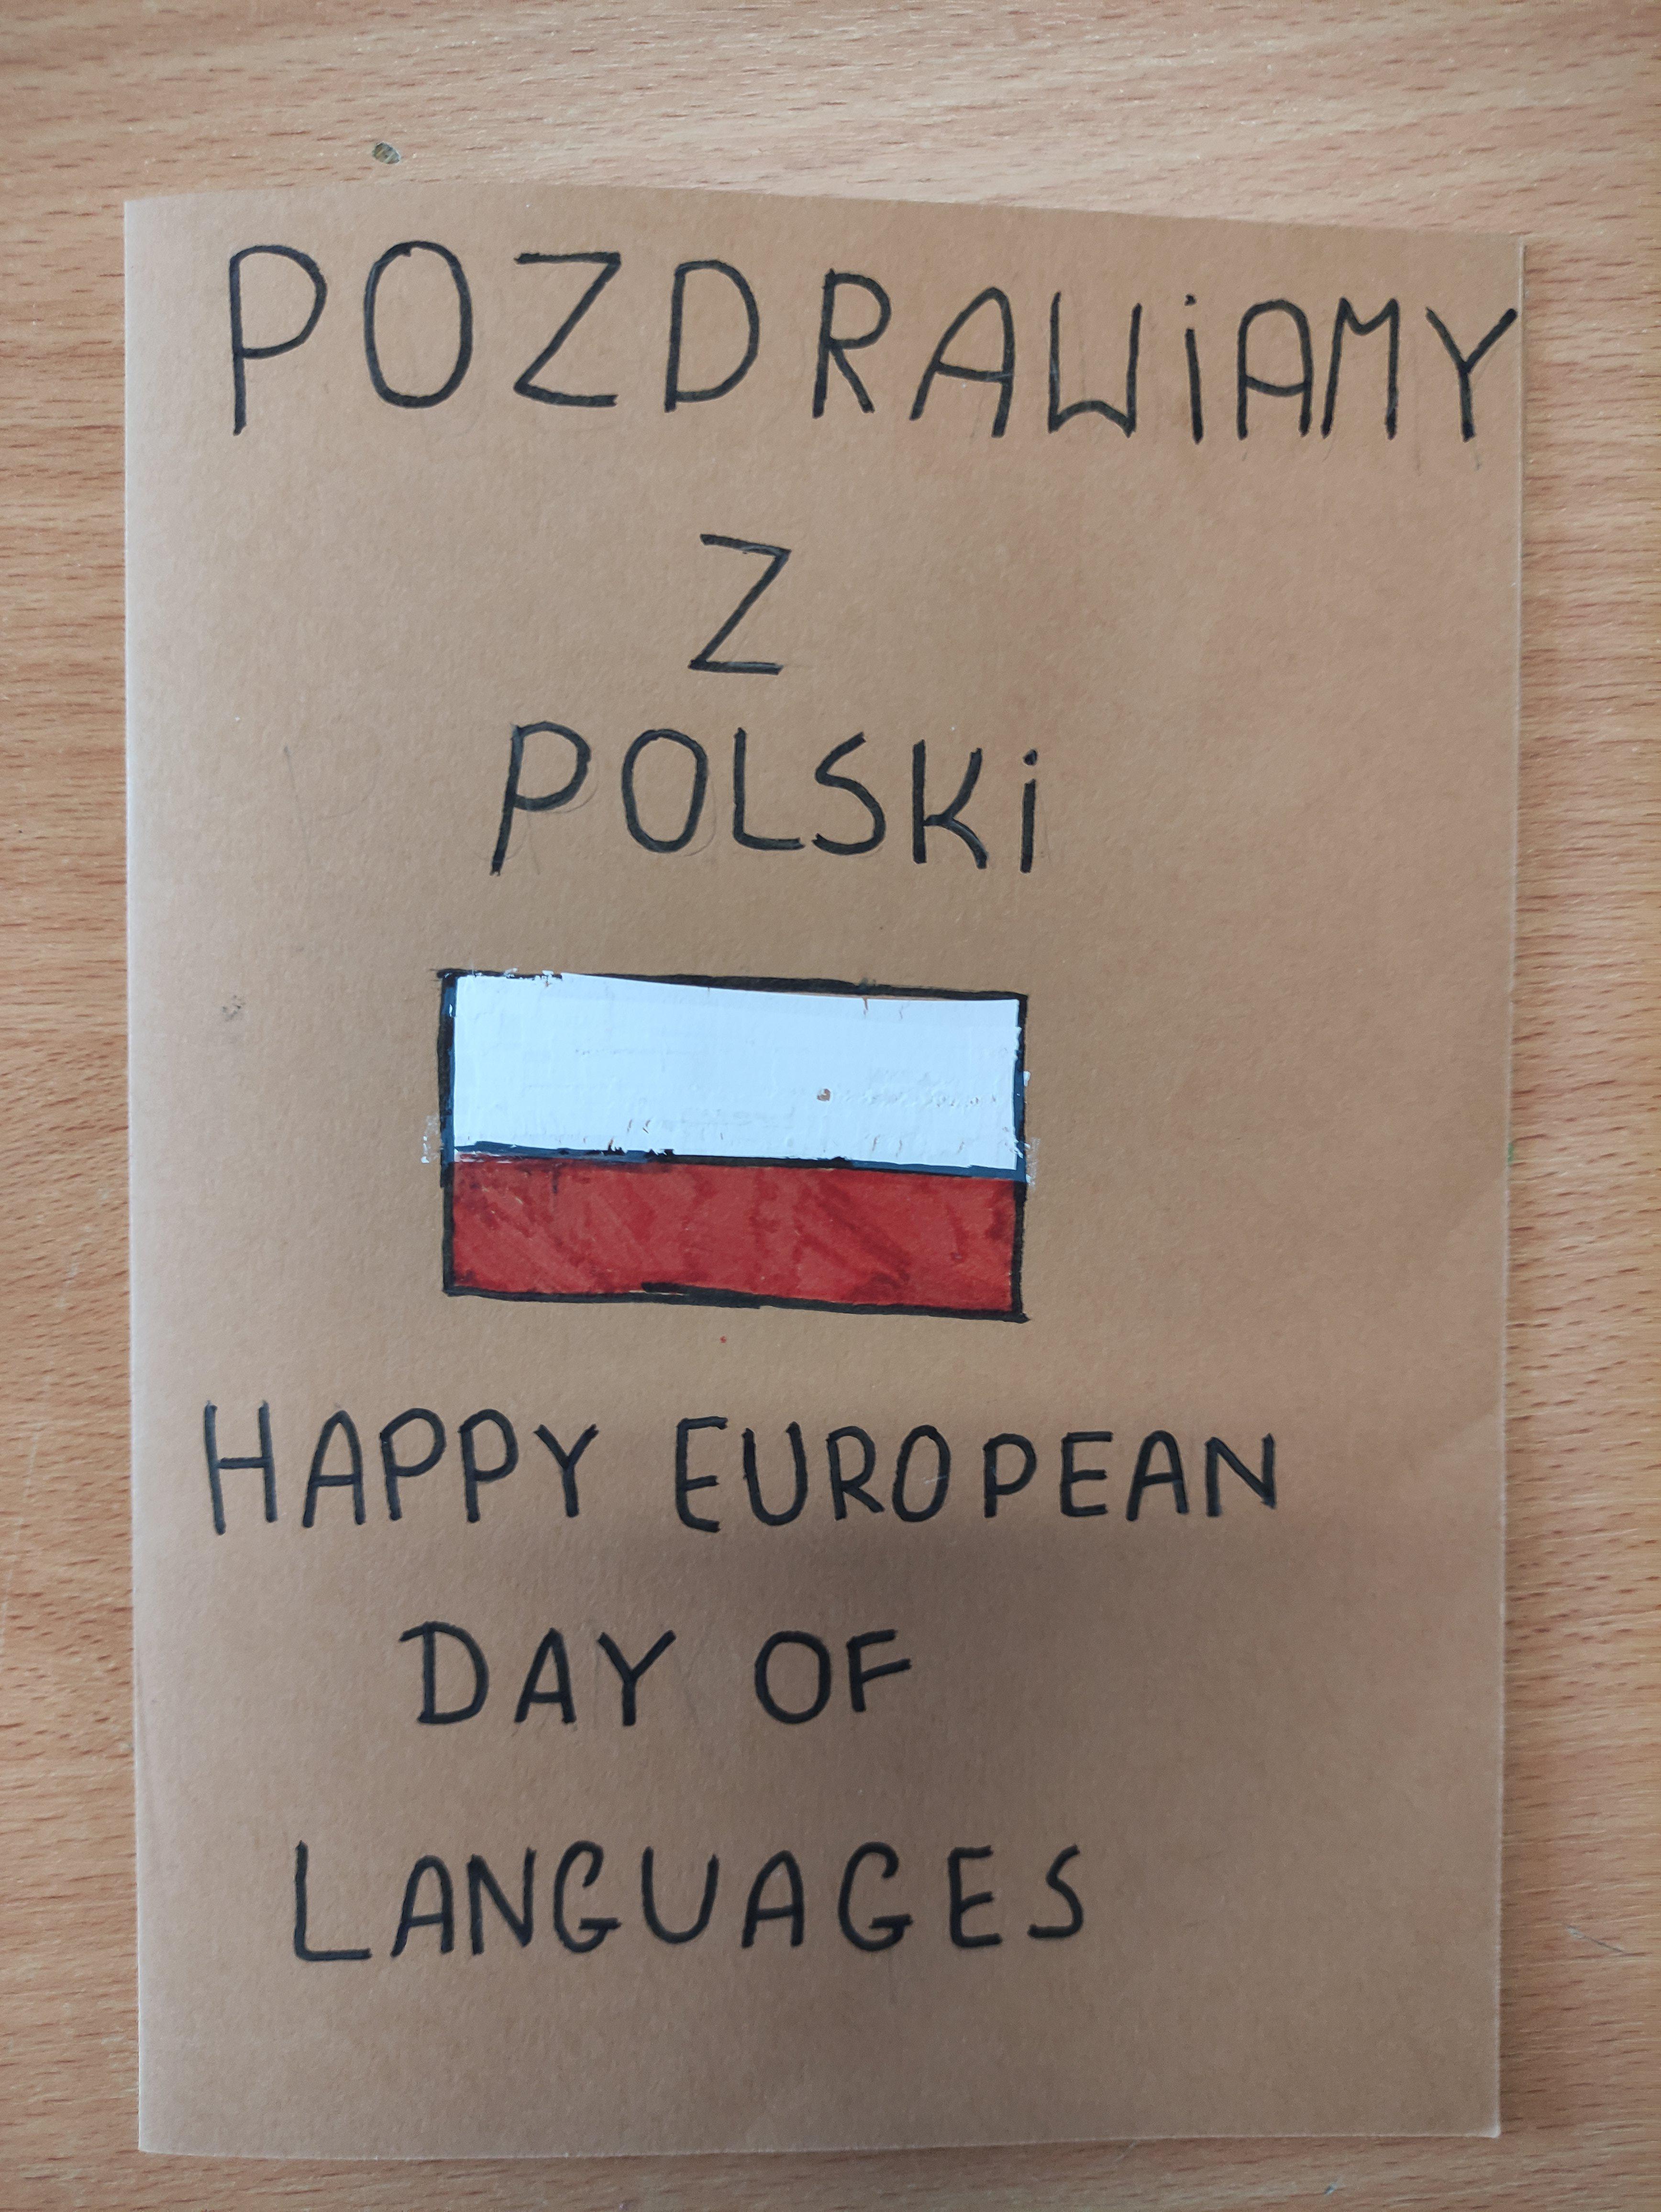 POZDRAWiAMY
Z
POLSKi
HAPPY EUROPEAN
DAY OF
LANGUAGES